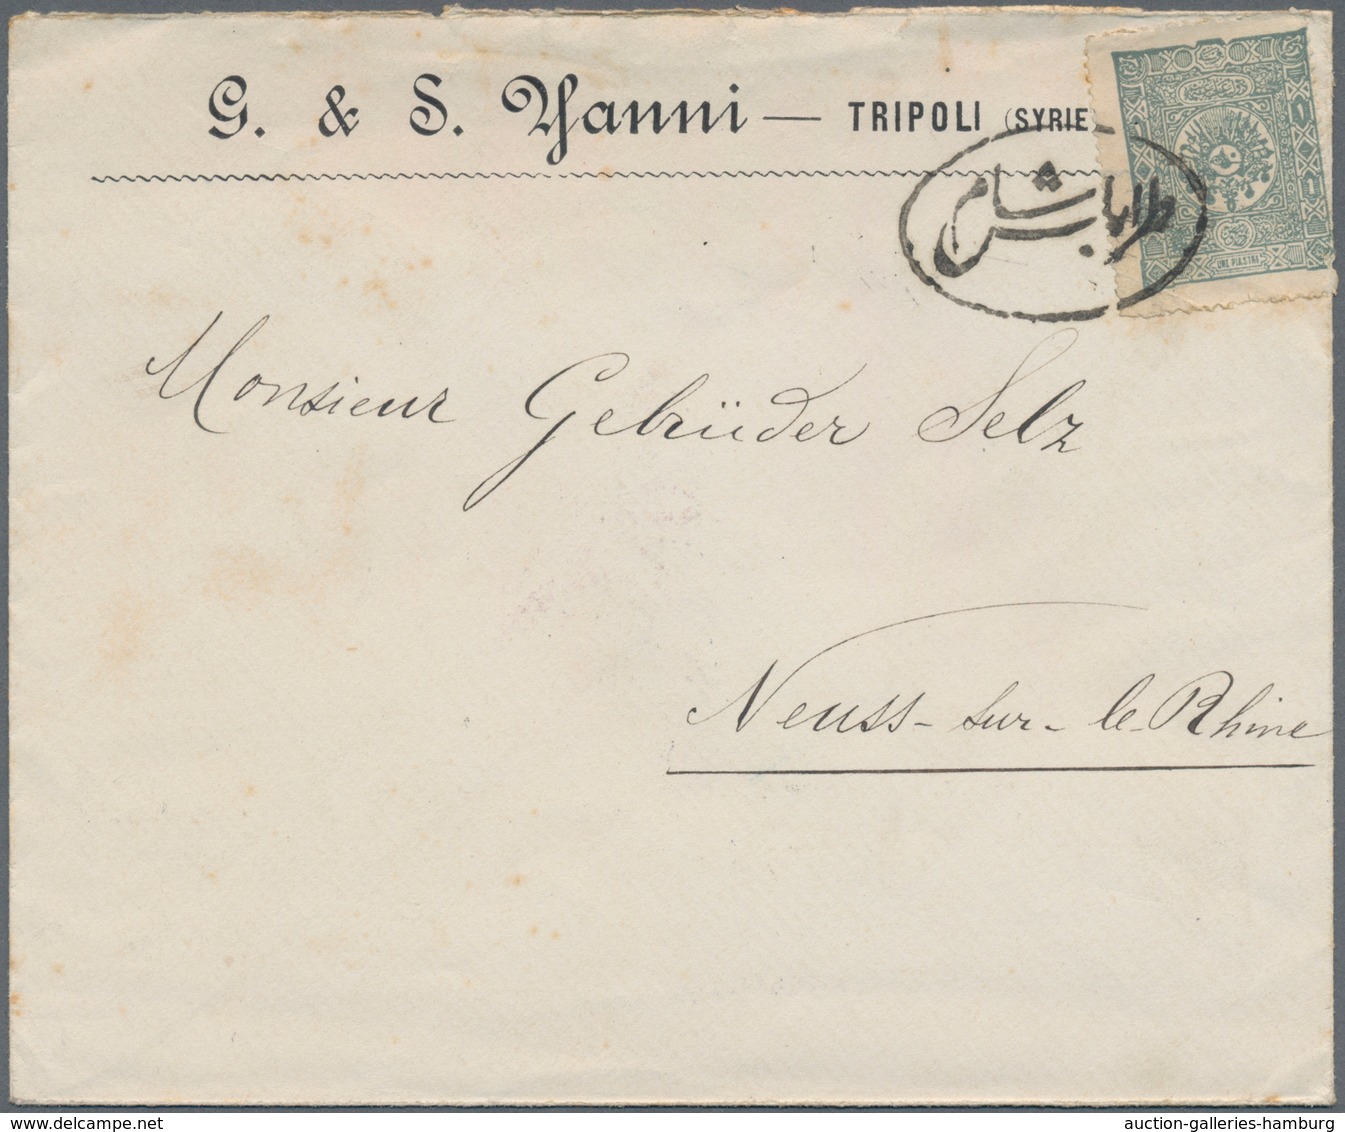 G. & S. Yanni — TRIPOLI (SYRIE)
طرابلس شام
UNE PIASTRE
Monsieur Gebrüder Selz
Neuss-sur-le-Rhine
auction-galleries-hamburg
delcampe.net